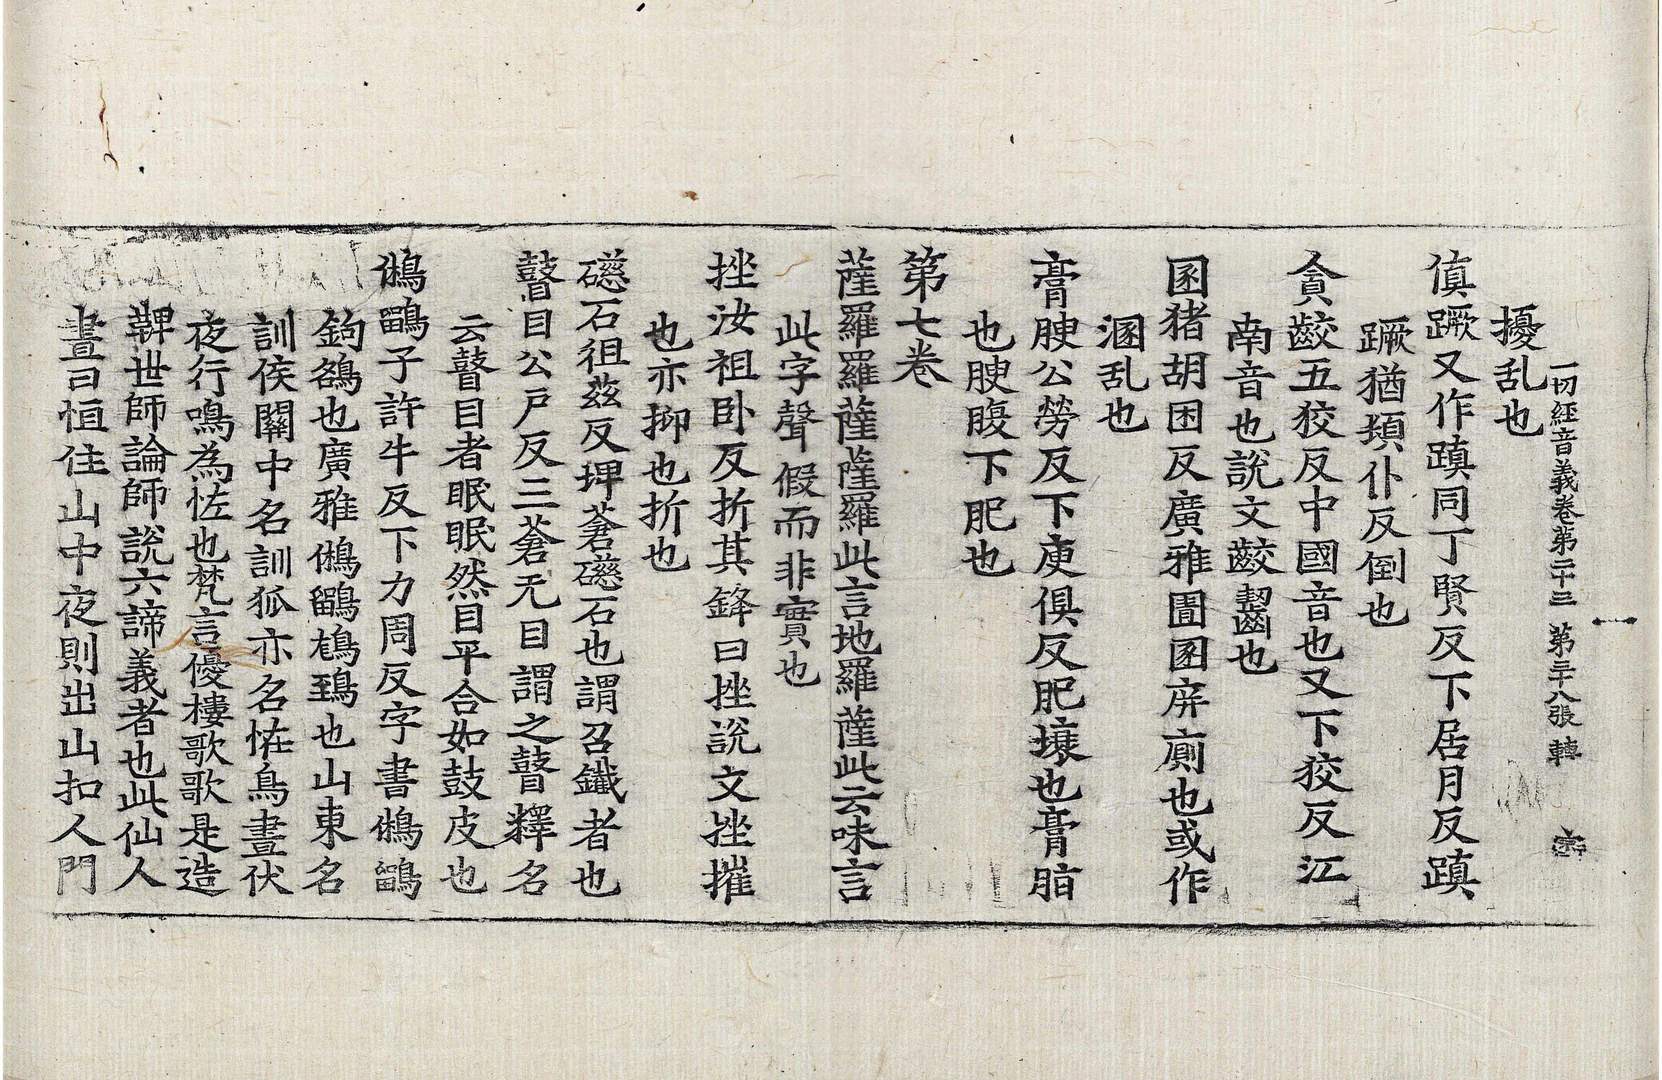 一切經音義卷第二十三 第三十八張 轉
擾乱也
傎蹶又作蹎同丁賢反下居月反蹎
蹶猶頓仆反倒也
貪齩五狡反中國音也又下狡反江
南音也說文齩齧也
圂猪胡困反廣雅圊圂屏廁也或作
溷乱也
膏腴公勞反下庾俱反肥壤也膏脂
也腴腹下肥也
第七卷
薩羅羅薩薩羅此言地羅薩此云味言
此字聲假而非實也
挫汝祖卧反折其鋒曰挫說文挫摧
也亦抑也折也
礠石徂茲反埤蒼礠石也謂召鐵者也
瞽目公戶反三蒼无目謂之瞽釋名
云瞽目者眠眠然目平合如鼓皮也
鵂鶹子許牛反下力周反字書鵂鶹
鉤鵅也廣雅鵂鶹鴟鵄也山東名
訓侯關中名訓狐亦名恠鳥晝伏
夜行鳴為恠也梵言優樓歌歌是造
鞞世師論師說六諦義者也此仙人
晝日恒住山中夜則出山扣人門